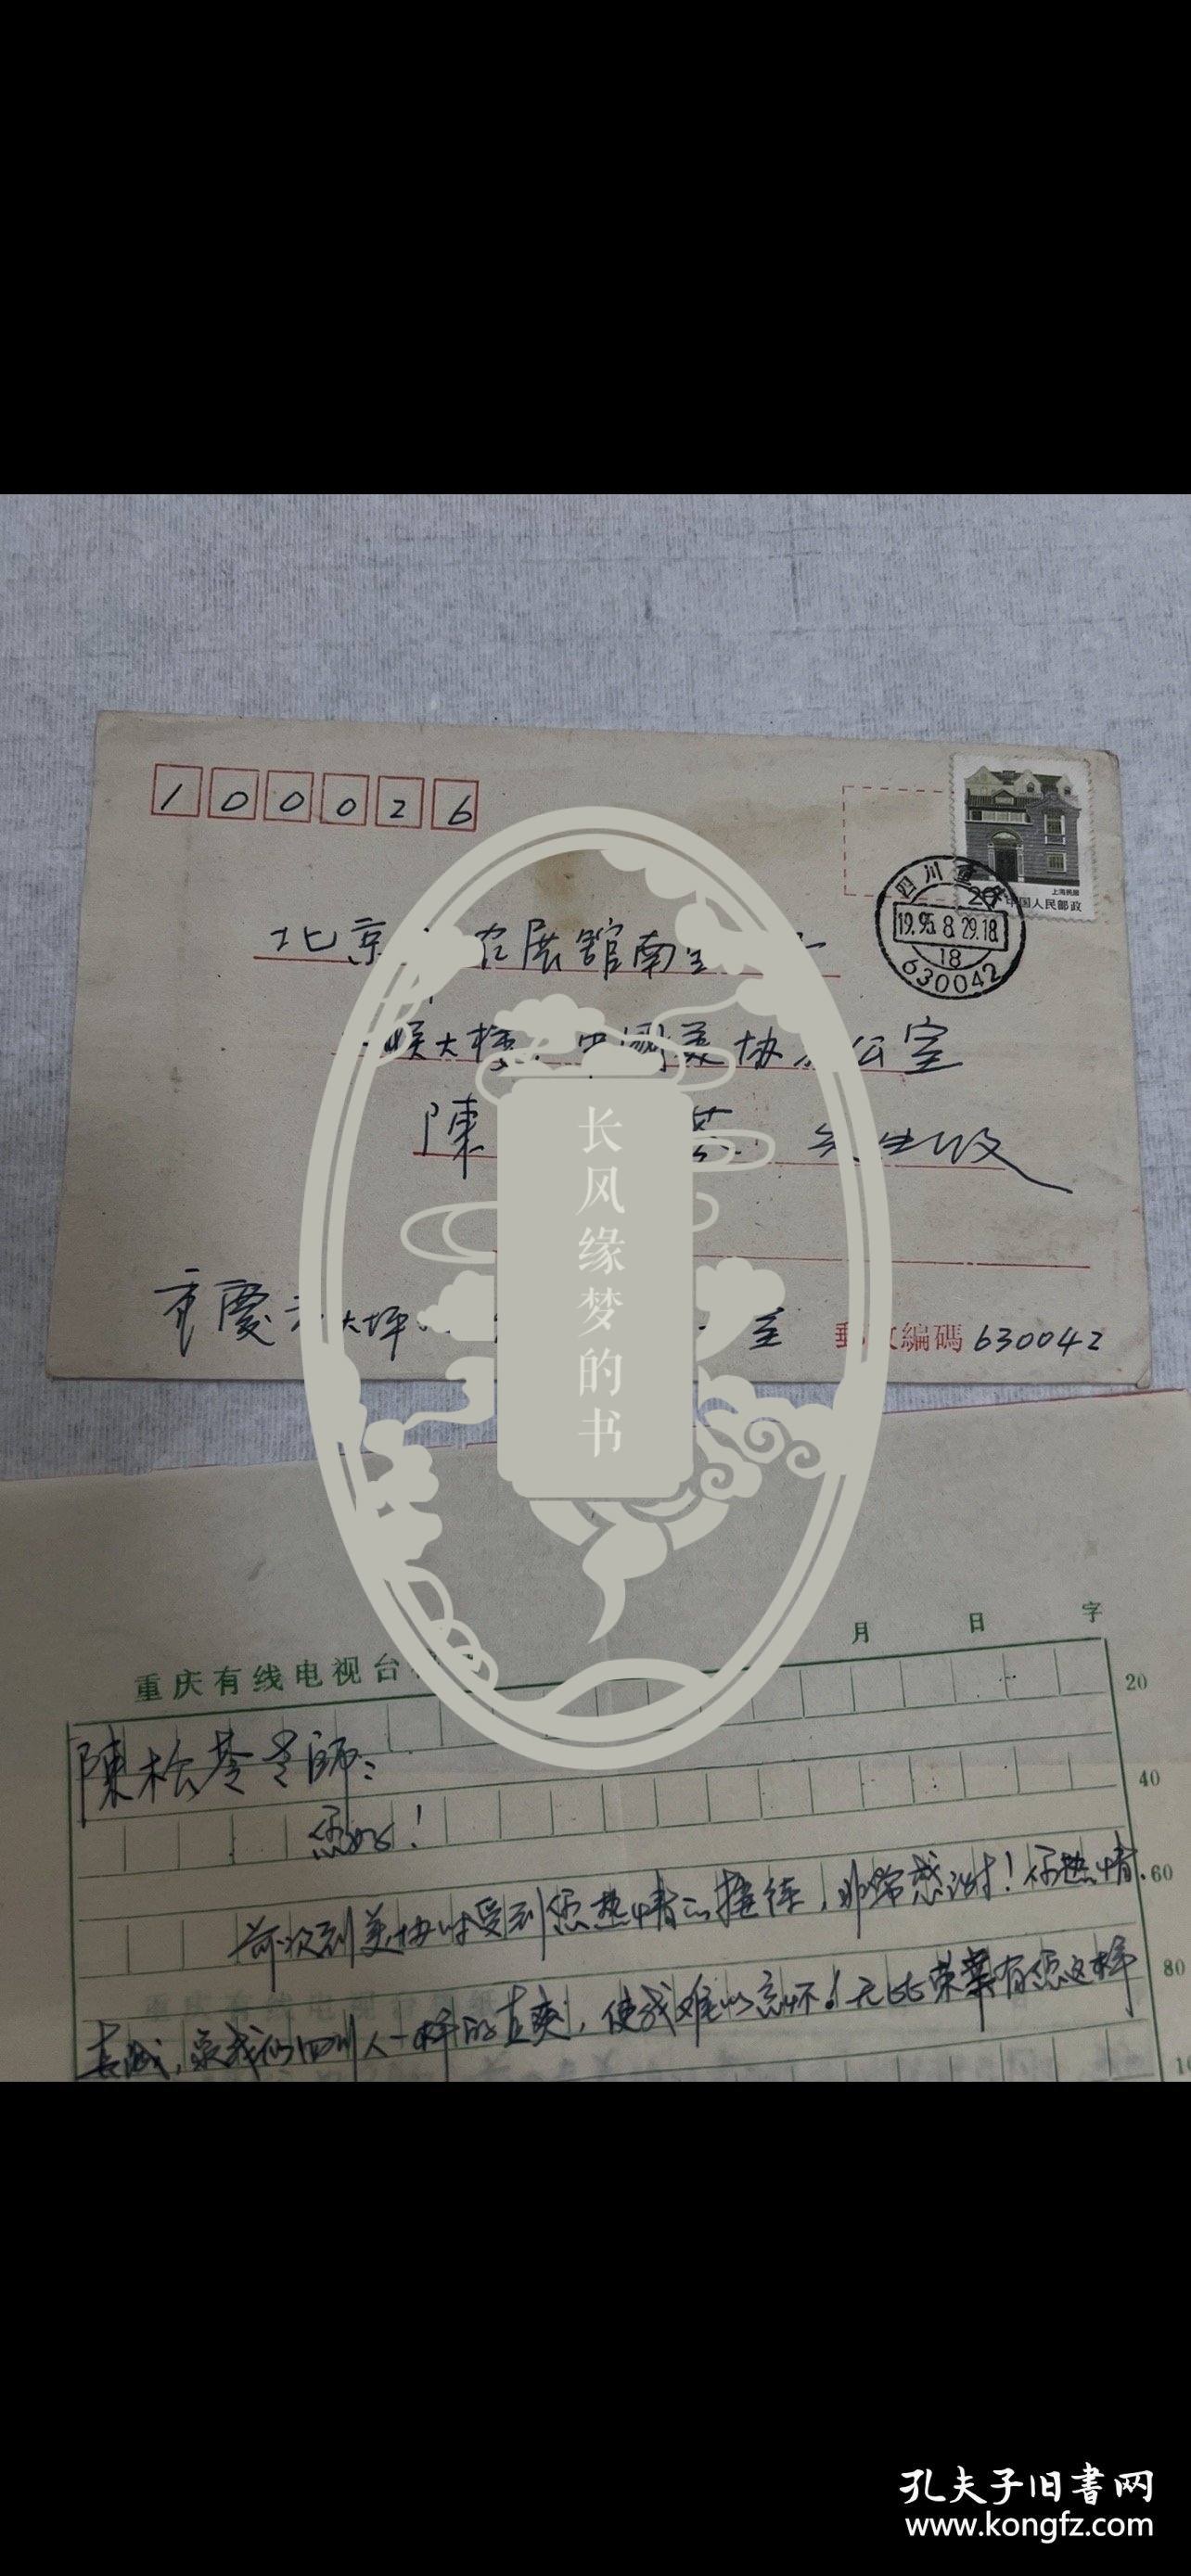 100026
上海民居
20 中国人民邮政
四川重庆
19.95.8.29.18
18
630042
北京 农展馆南
大楼 中国美协 公室
陳 先生收
重慶 大坪 室 郵政編碼 630042
长风缘梦的书
重庆有线电视台
月 日 字
20
陳松苓老師：
40
您好！
前次到美协时受到您热情的接待，非常感谢！你热情、
60
真诚，象我们四川人一样的直爽，使我难以忘怀！无比荣幸有您这样
80
孔夫子旧書网
www.kongfz.com